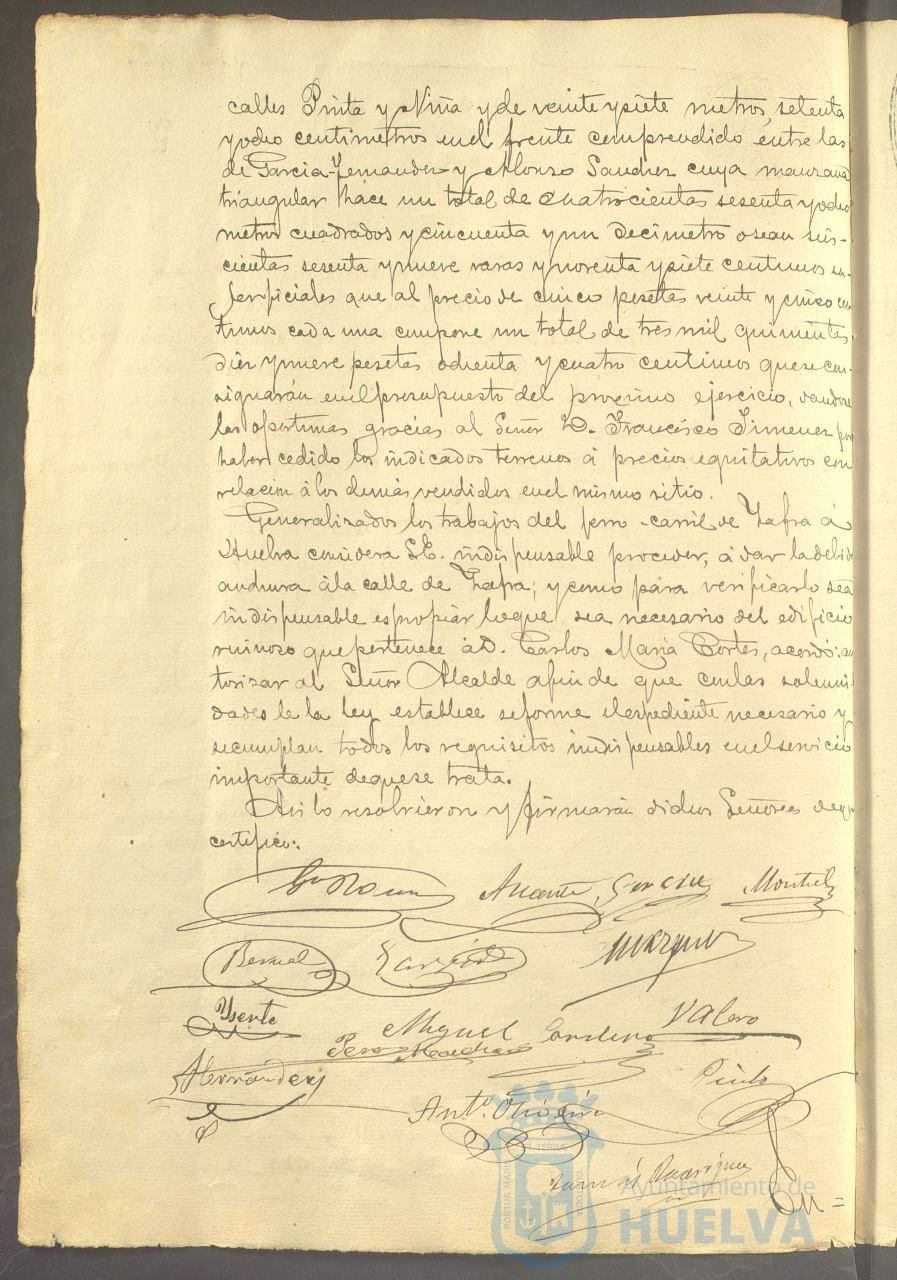 calles Pinta y Niña y de veinte y siete metros, setenta
y ocho centimetros en el frente comprendido entre las
de Garcia-Fernandez y Alonso Sanchez cuya manzana
triangular hace un total de cuatrocientas sesenta y ocho
metros cuadrados y cincuenta y un decimetro o sean seis-
cientas sesenta y nueve varas y noventa y siete centimos su-
perficiales que al precio de cinco pesetas veinte y cinco cen
timos cada una compone un total de tres mil quinientas
diez y nueve pesetas ochenta y cuatro centimos que se con-
signarán en el presupuesto del proximo ejercicio, dandose
las oportunas gracias al Señor D. Francisco Jimenez por
haber cedido los indicados terrenos á precios equitativos con
relacion á los demás vendidos en el mismo sitio.
Generalizados los trabajos del ferro-carril de Zafra á
Huelva considera S.E. indispensable proceder, á dar la debida
anchura á la calle de Zafra; y como para verificarlo sea
indispensable espropiar lo que sea necesario del edificio
ruinoso que pertenece á D. Carlos Maria Cortes, acordó: au
torizar al Señor Alcalde afin de que con las solemni-
dades de la ley establece se forme el espediente necesario y
se cumplan todos los requisitos indispensables en el servicio
importante de que se trata.
Asi lo resolvieron y firmarán dichos Señores de que
certifico:
Garcia Montiel
Bernal Garrido Marquez
Ysente Miguel Cordero Valero
Hernandez Pinto
Ant.º Oliveira
Tomás Rodriguez
Ayuntamiento de
HUELVA